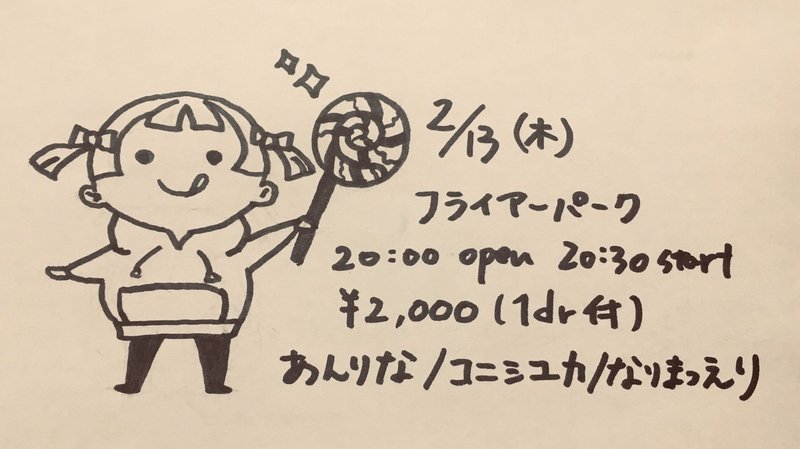 2/13 (木)
フライアーパーク
20:00 open 20:30 start
¥2,000 (1dr付)
あんりな/コニシユカ/なりまつえり